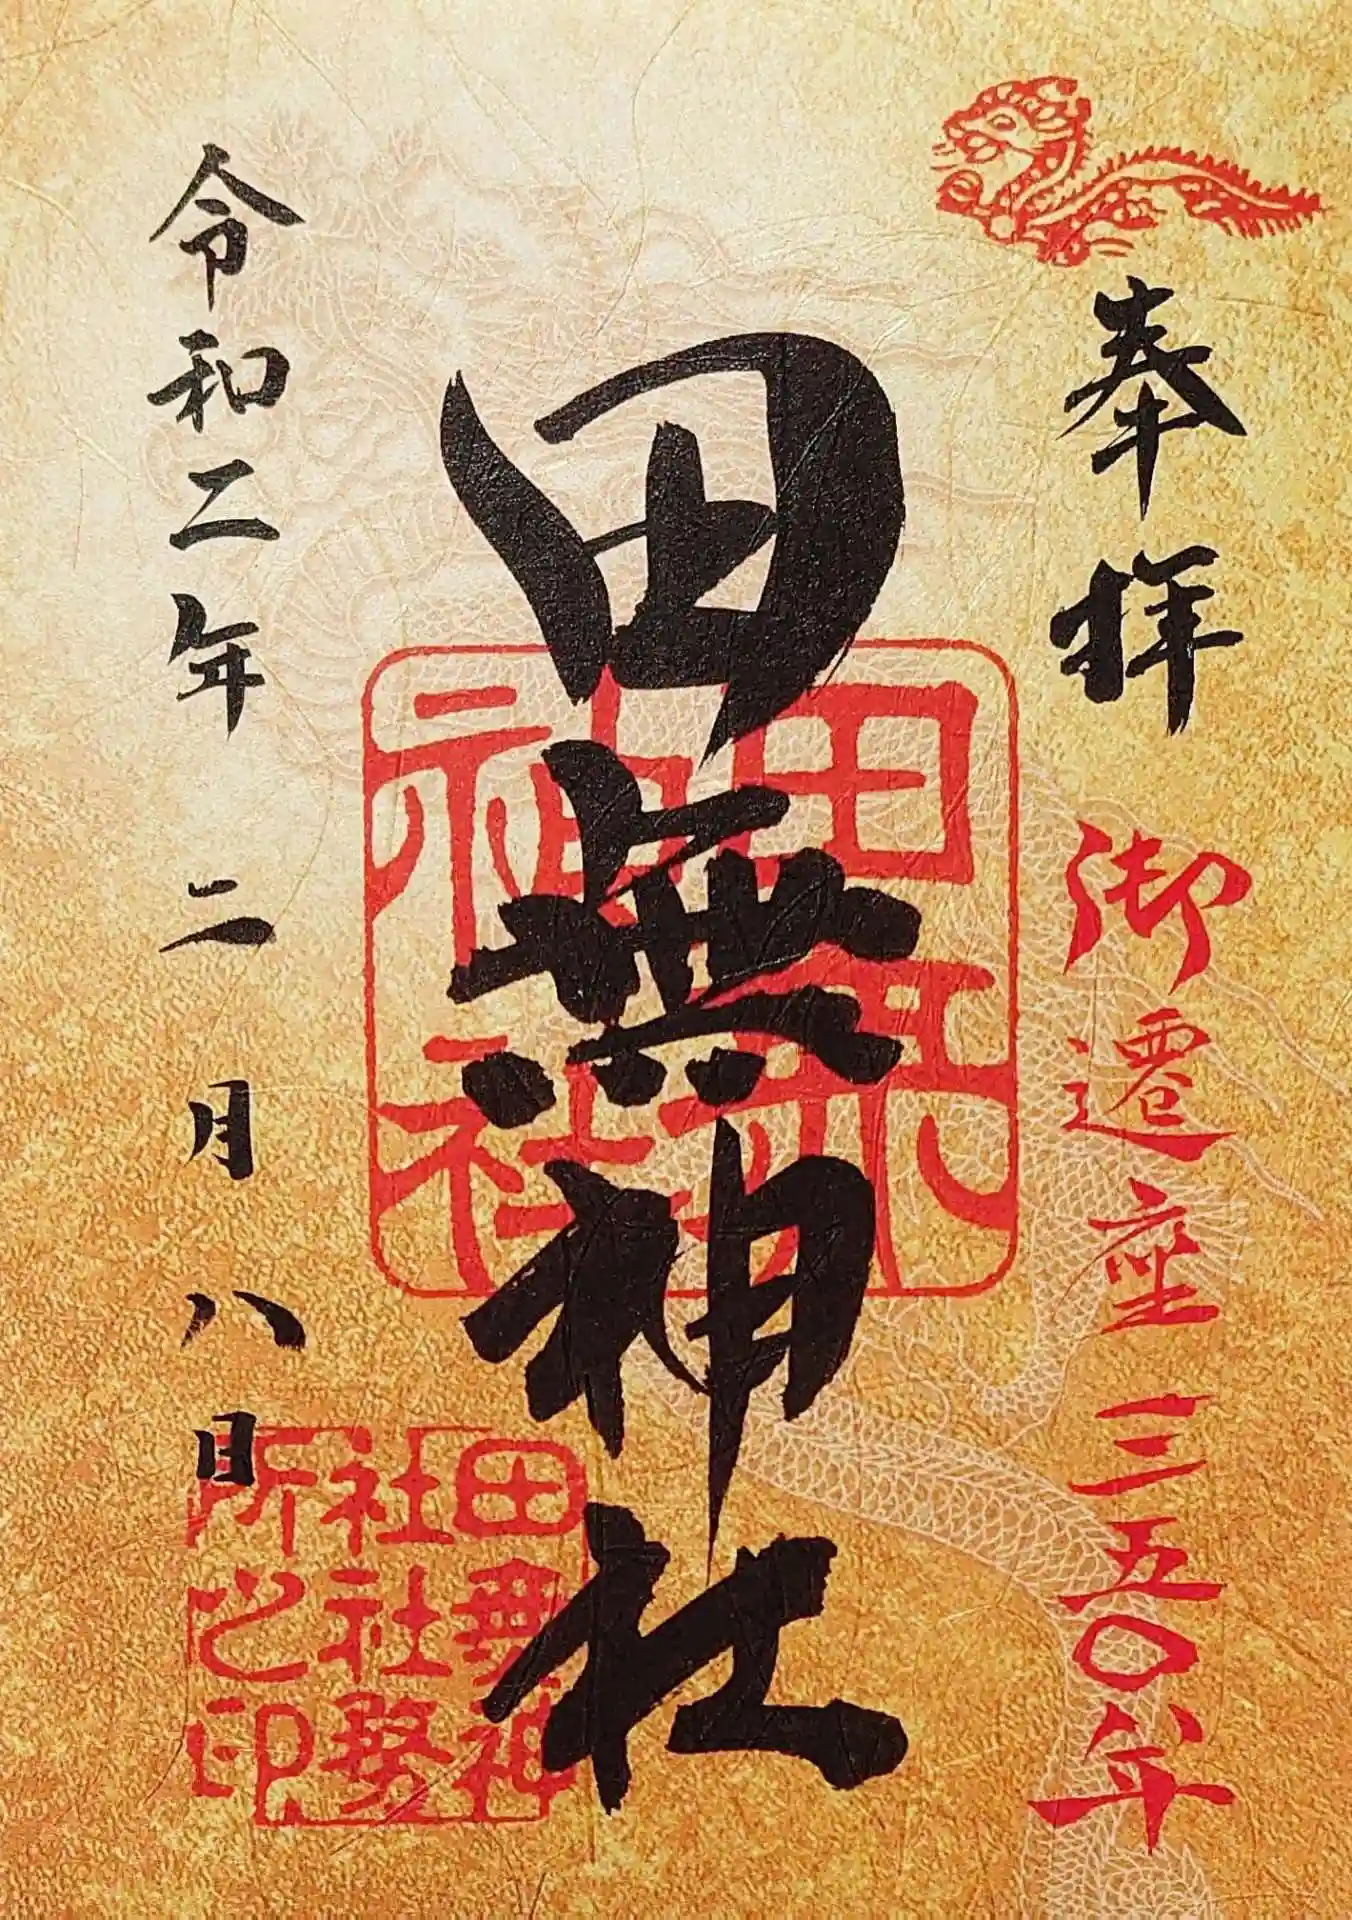 奉拝
御遷座三五〇年
田無神社
田無神社
田無神
社社務
所之印
令和二年 二月八日